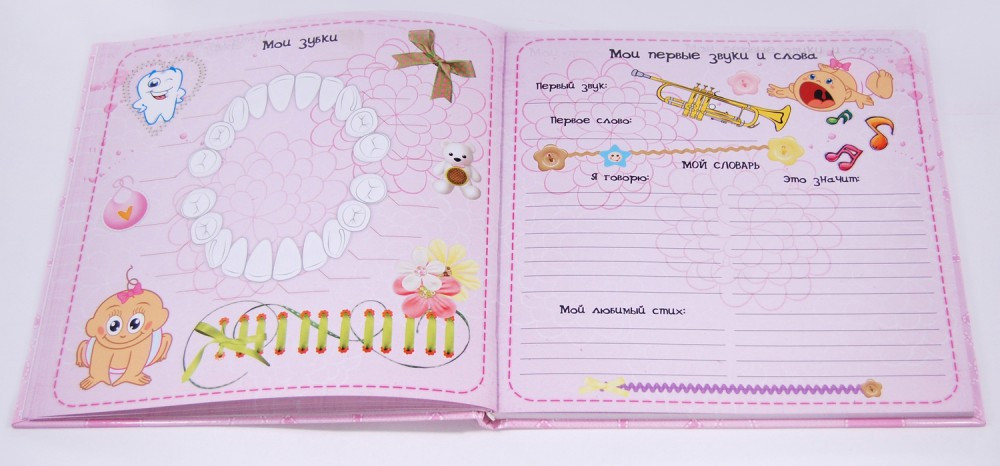 Мои зубки
Мои первые звуки и слова
Первый звук:
Первое слово:
МОЙ СЛОВАРЬ
Я говорю:
Это значит:
Мой любимый стих: